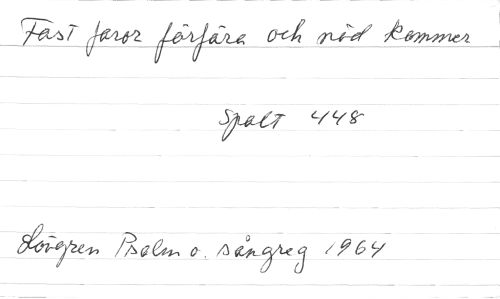 Fast faror förfära och nöd kommer
Spalt 448
Lövgren Psalm o. sångreg 1964